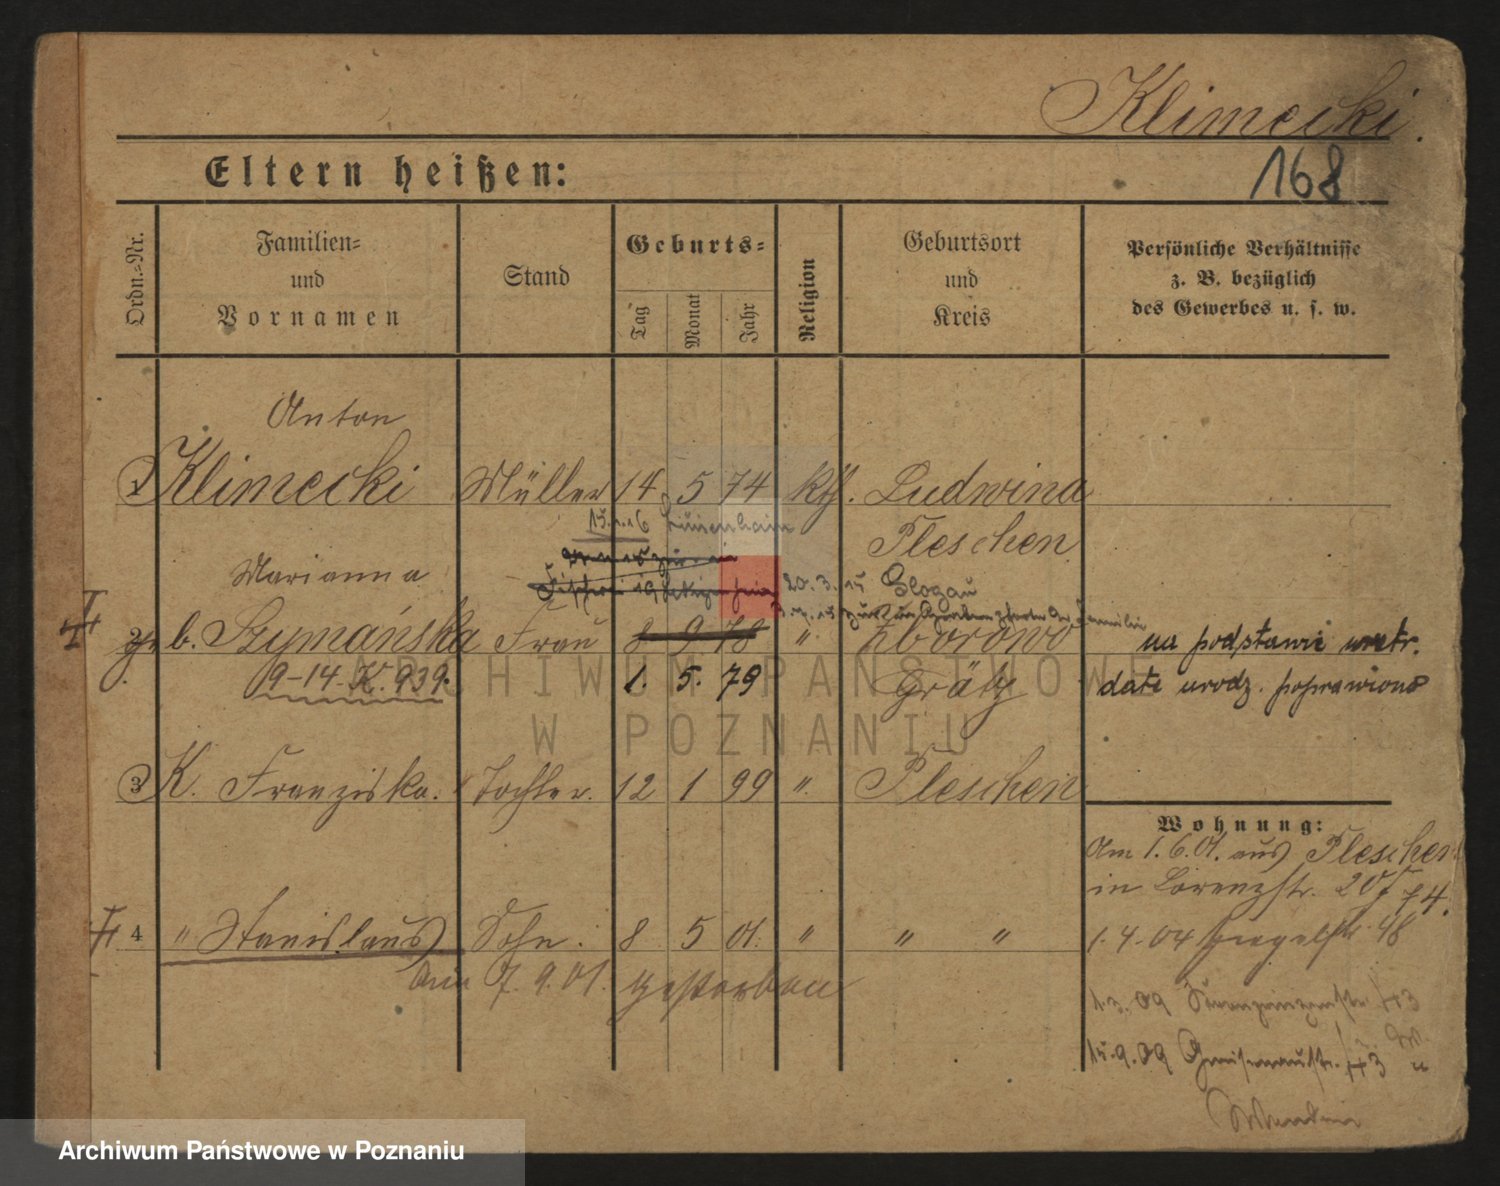 Klimecki.
168
Eltern heißen:
Ordn.-Nr.
Familien-
und
Vornamen
Stand
Geburts-
Tag
Monat
Jahr
Religion
Geburtsort
und
Kreis
Persönliche Verhältnisse
z. B. bezüglich
des Gewerbes u. s. w.
Anton
1 Klimecki Müller 14 5 74 Kth. Ludwina
Pleschen
15.1.16
Marianna
20.3.15 Glogau
2 geb. Szymańska Frau 8 9 78 " Zborowo
na podstawie metr.
9-14. K. 939. 1. 5. 79 Grätz
date urodz. poprawiono
3 K. Franziska. Tochter. 12 1 99 " Pleschen
Wohnung:
Am 1.6.01. aus Pleschen
in Lorenzstr. 20
4 " Stanislaus Sohn. 8 5 01. " " "
1.4.04 48
Am 7.9.01. gestorben
1.3.09
15.9.09 Gneisenaustr.
ARCHIWUM PAŃSTWOWE
W POZNANIU
Archiwum Państwowe w Poznaniu